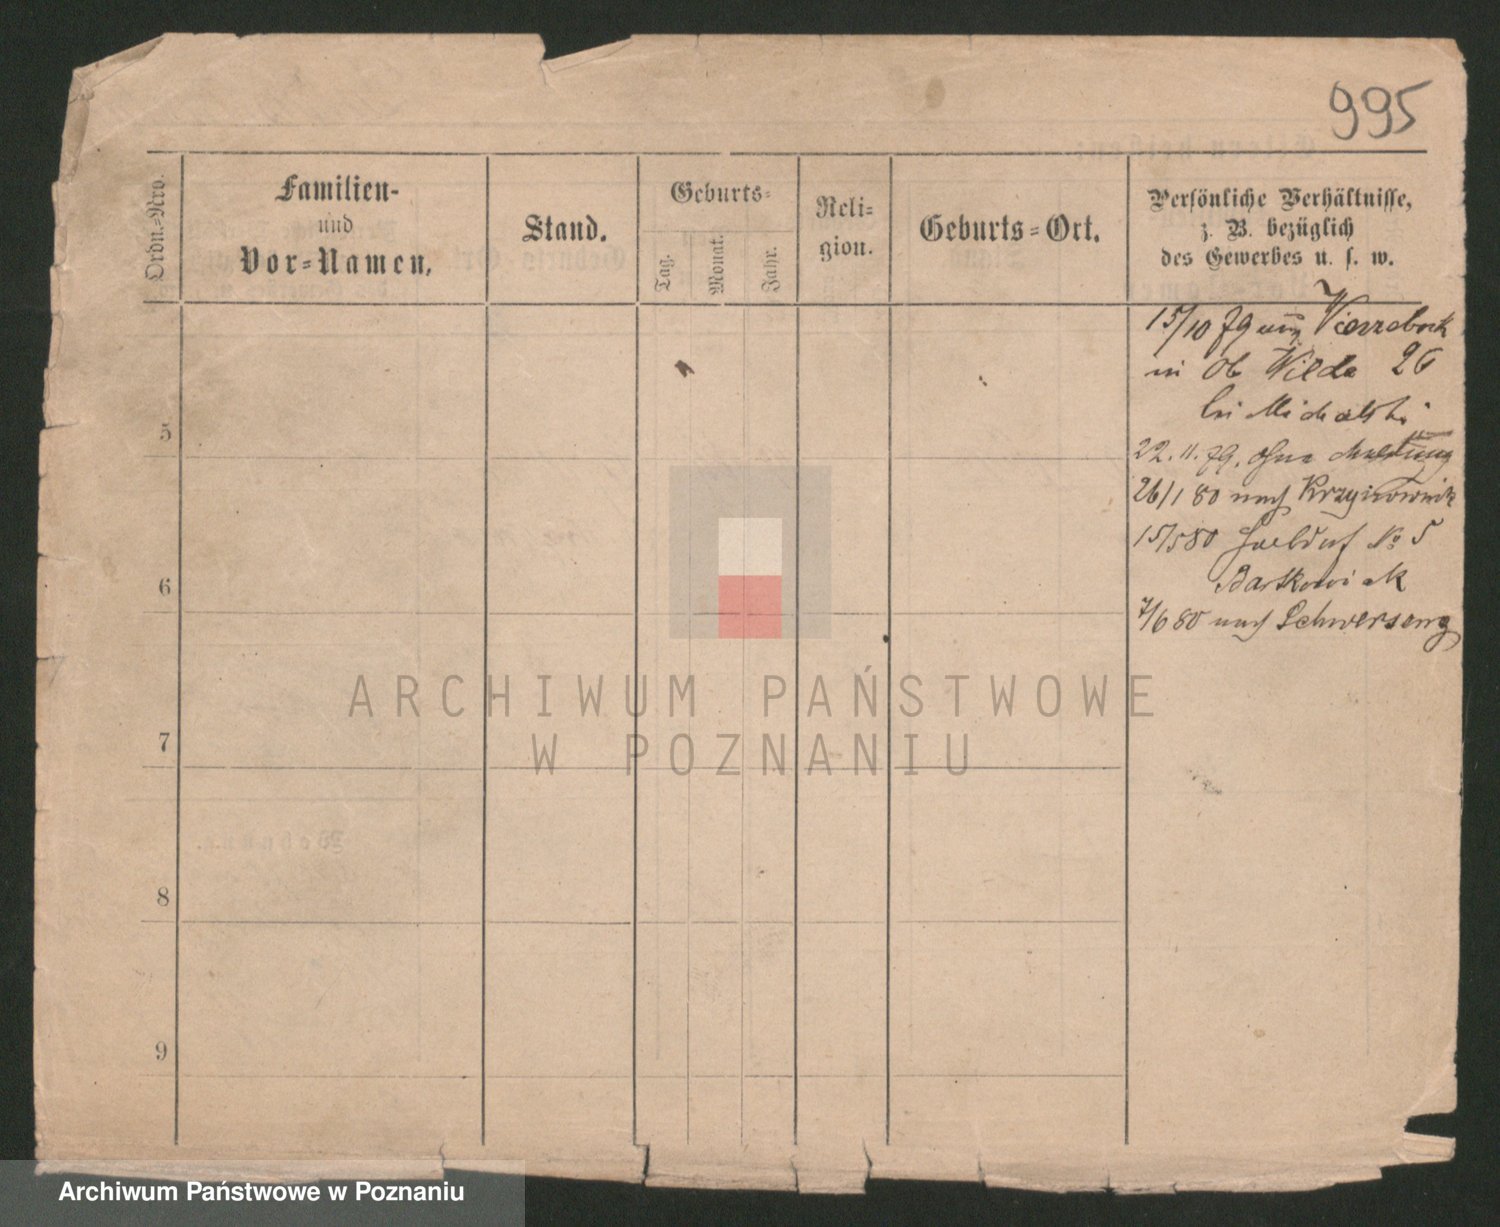 995
Ordn.-Nro.
Familien-
und
Vor-Namen.
Stand.
Geburts-
Tag.
Monat.
Jahr.
Reli-
gion.
Geburts-Ort.
Persönliche Verhältnisse,
z. B. bezüglich
des Gewerbes u. s. w.
15/10 79 aus
in Ob Wilda 26
bei Michalski
22.11.79. ohne Meldung
26/1 80 nach
15/5 80 No 5
Bartkowiak
7/6 80 nach Schwersenz
5
6
7
8
9
ARCHIWUM PAŃSTWOWE
W POZNANIU
Archiwum Państwowe w Poznaniu